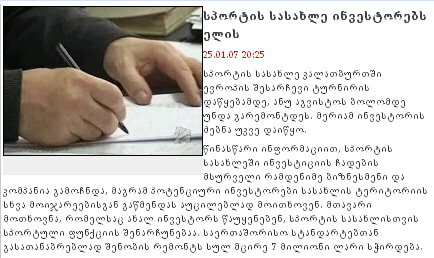 სპორტის სასახლე ინვესტორებს
ელის
25.01.07 20:25
სპორტის სასახლე კალათბურთში
ევროპის შესარჩევი ტურნირის
დაწყებამდე, ანუ აგვისტოს ბოლომდე
უნდა გარემონტდეს. მერიამ ინვესტორის
ძებნა უკვე დაიწყო.
წინასწარი ინფორმაციით, სპორტის
სასახლეში ინვესტიციის ჩადების
მსურველი რამდენიმე ბიზნესმენი და
კომპანია გამოჩნდა, მაგრამ პოტენციური ინვესტორები სასახლის ტერიტორიის
სხვა მოიჯარეებისგან გაწმენდას აუცილებლად მოითხოვენ. მთავარი
მოთხოვნა, რომელსაც ახალ ინვესტორს წაუყენებენ, სპორტის სასახლისთვის
სპორტული ფუნქციის შენარჩუნებაა. საერთაშორისო სტანდარტებთან
გასათანაბრებლად შენობის რემონტს სულ მცირე 7 მილიონი ლარი სჭირდება.